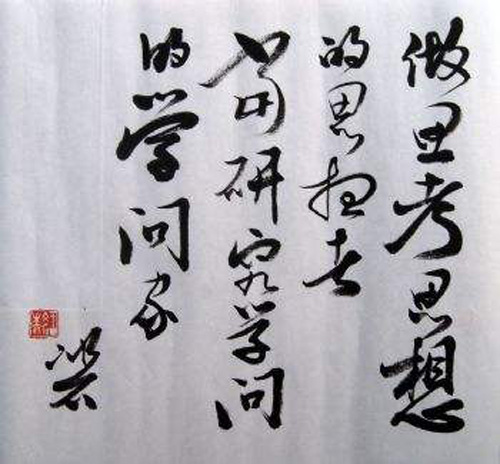 做思考思想
的思想者
研究学问
的学问家